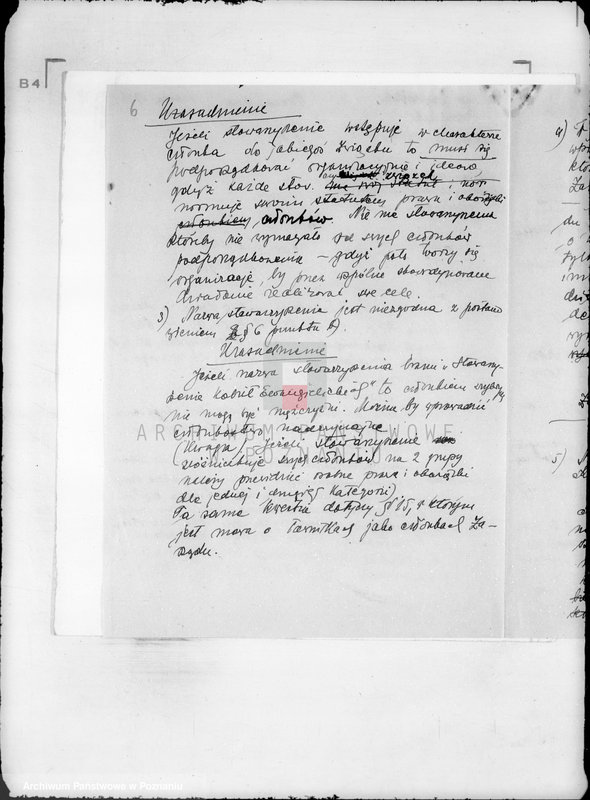 B4
6 Uzasadnienie
Jeżeli stowarzyszenie wstępuje w charakterze
członka do jakiegoś związku to musi się
podporządkować organizacyjnie i ideowo
gdyż każde stow. związek
normuje swoim statutem prawa i obowiązki
członków. Nie ma stowarzyszenia
któreby nie wymagało od swych członków
podporządkowania – gdyż poto tworzy się
organizacje, by przez wspólne skoordynowane
działanie realizować swe cele.
3) Nazwa stowarzyszenia jest niezgodna z postano
wieniem § 6 punktu b).
Uzasadnienie
Jeżeli nazwa stowarzyszenia brzmi „Stowarzy-
szenie Kobiet Ewangelickich" to członkiem zwycz.
nie mogą być mężczyźni. Można by wprowadzić
członkostwo nadzwyczajne
(Uwaga: Jeżeli stowarzyszenie
rozróżnia swych członków na 2 grupy
należy przewidzieć osobne prawa i obowiązki
dla jednej i drugiej kategorii)
Ta sama kwestia dotyczy § 15, w którym
jest mowa o członkach Za-
rządu.
4)
5)
ARCHIWUM PAŃSTWOWE
W POZNANIU
Archiwum Państwowe w Poznaniu